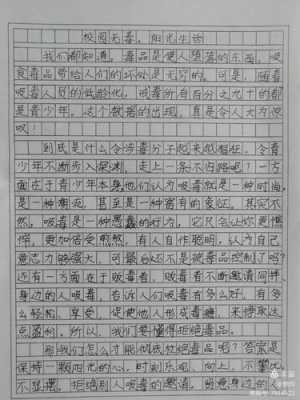 校园无毒，阳光生活
我们都知道，毒品是使人堕落的东西，吸
食毒品带给人们的坏处是无穷的。可是，随着
吸毒人员的低龄化，戒毒所百分之九十的都
是青少年。这个数据的出现，真是令人大为感
叹！
到底是什么令涉毒分子越来越猖狂，令青
少年不断步入深渊，走上一条不归路呢？一方
面在于青少年本身，他们认为吸毒就是一种时尚
是一种潮流，甚至是一种富有的象征。其实不
然，吸毒是一种愚蠢的行为，它只会让你更憔
悴，更加倍受煎熬。有人自作聪明，认为自己
意志力够强大，可最后还不是被毒品控制了吗？
还有一方面在于贩毒者，贩毒者不断邀请同伴
身边的人吸毒，告诉人们吸毒有多么好，有多
么轻松，享受，促使他人染上毒瘾，来榨取这
点盈利。所以，我们要懂得拒绝毒品。
那我们怎么才能彻底杜绝毒品呢？答案是
保持一颗阳光的心，时刻乐观、向上，不攀比
不显摆，拒绝别人吸毒的邀请，留意身边的